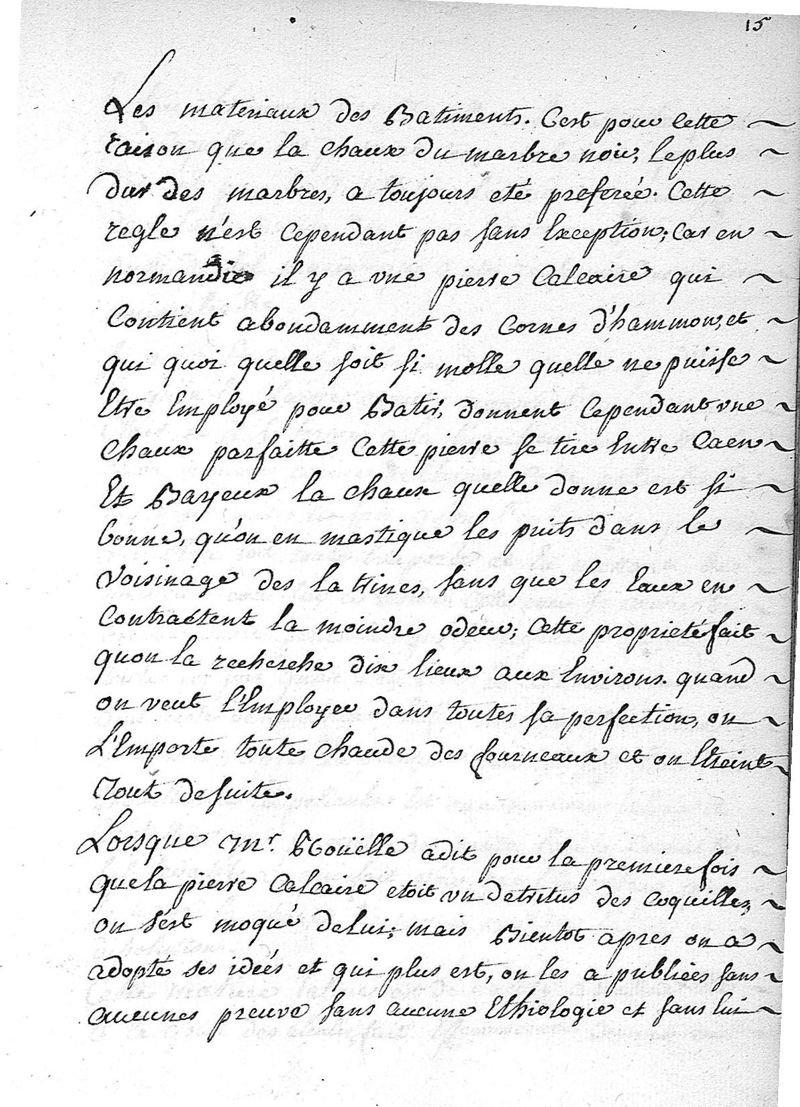 15
Les materiaux des Batiments. C'est pour cette
raison que la chaux du marbre noir, le plus
dur des marbres, a toujours eté preferée. Cette
regle n'est cependant pas sans Exception; Car en
normandie il y a une pierre Calcaire qui
Contient abondamment des Cornes d'hammon, et
qui quoi quelle soit si molle quelle ne puisse
Etre Employé pour Batir, donnent Cependant une
Chaux parfaitte Cette pierre se tire Entre Caen
Et Bayeux la chaux quelle donne est si
bonne, qu'on en mastique les puits dans le
Voisinage des latrines, sans que les Eaux en
Contractent la moindre odeur; Cette proprieté fait
quon la recherche dix lieux aux Environs. quand
on veut l'Employer dans toutes sa perfection, on
L'Emporte toute Chaude des fourneaux et on l'Eteint
Tout de suite.
Lorsque Mr. Rouëlle a dit pour la premiere fois
que la pierre Calcaire etoit un detritus des Coquilles,
on s'est moqué de lui; mais Bientot apres on a
adopté ses ideés et qui plus est, on les a publiées sans
aucunes preuve sans aucune Ethiologie et sans lui